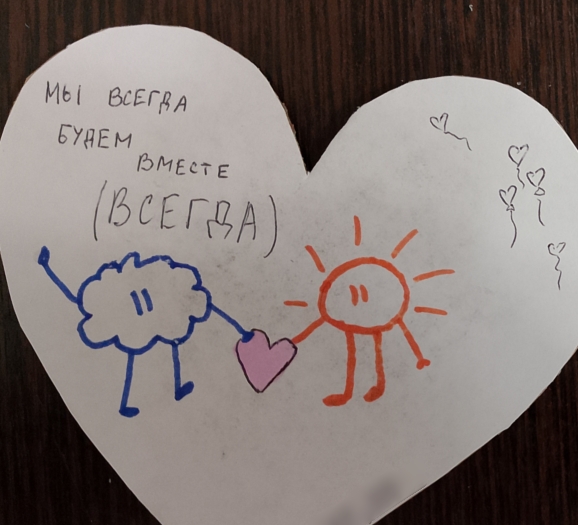 МЫ ВСЕГДА
БУДЕМ
ВМЕСТЕ
(ВСЕГДА)